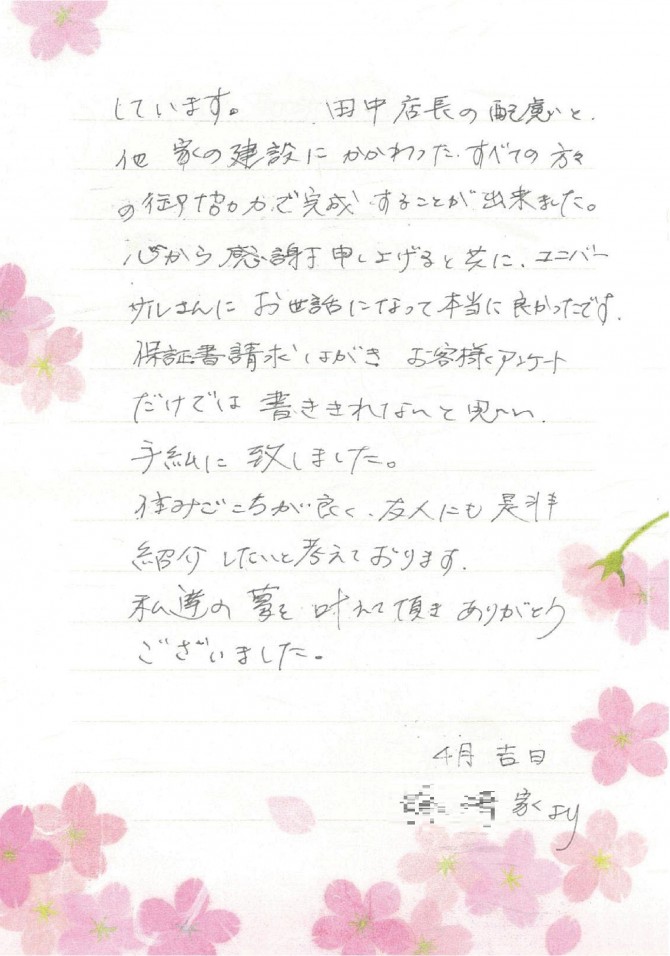 しています。 田中店長の配慮と、
他 家の建設にかかわった、すべての方々
の御協力で完成することが出来ました。
心から感謝申し上げると共に、ユニバー
サルさんに お世話になって本当に良かったです。
保証書請求はがき お客様アンケート
だけでは 書ききれないと思い、
手紙に 致しました。
住みごこちが良く、友人にも是非
紹介したいと考えております。
私達の夢を 叶えて頂き ありがとう
ございました。
4月 吉日
家より